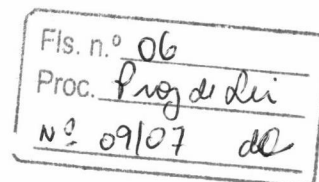 Fls. n.º 06
Proc. Proj de Lei
Nº 09/07